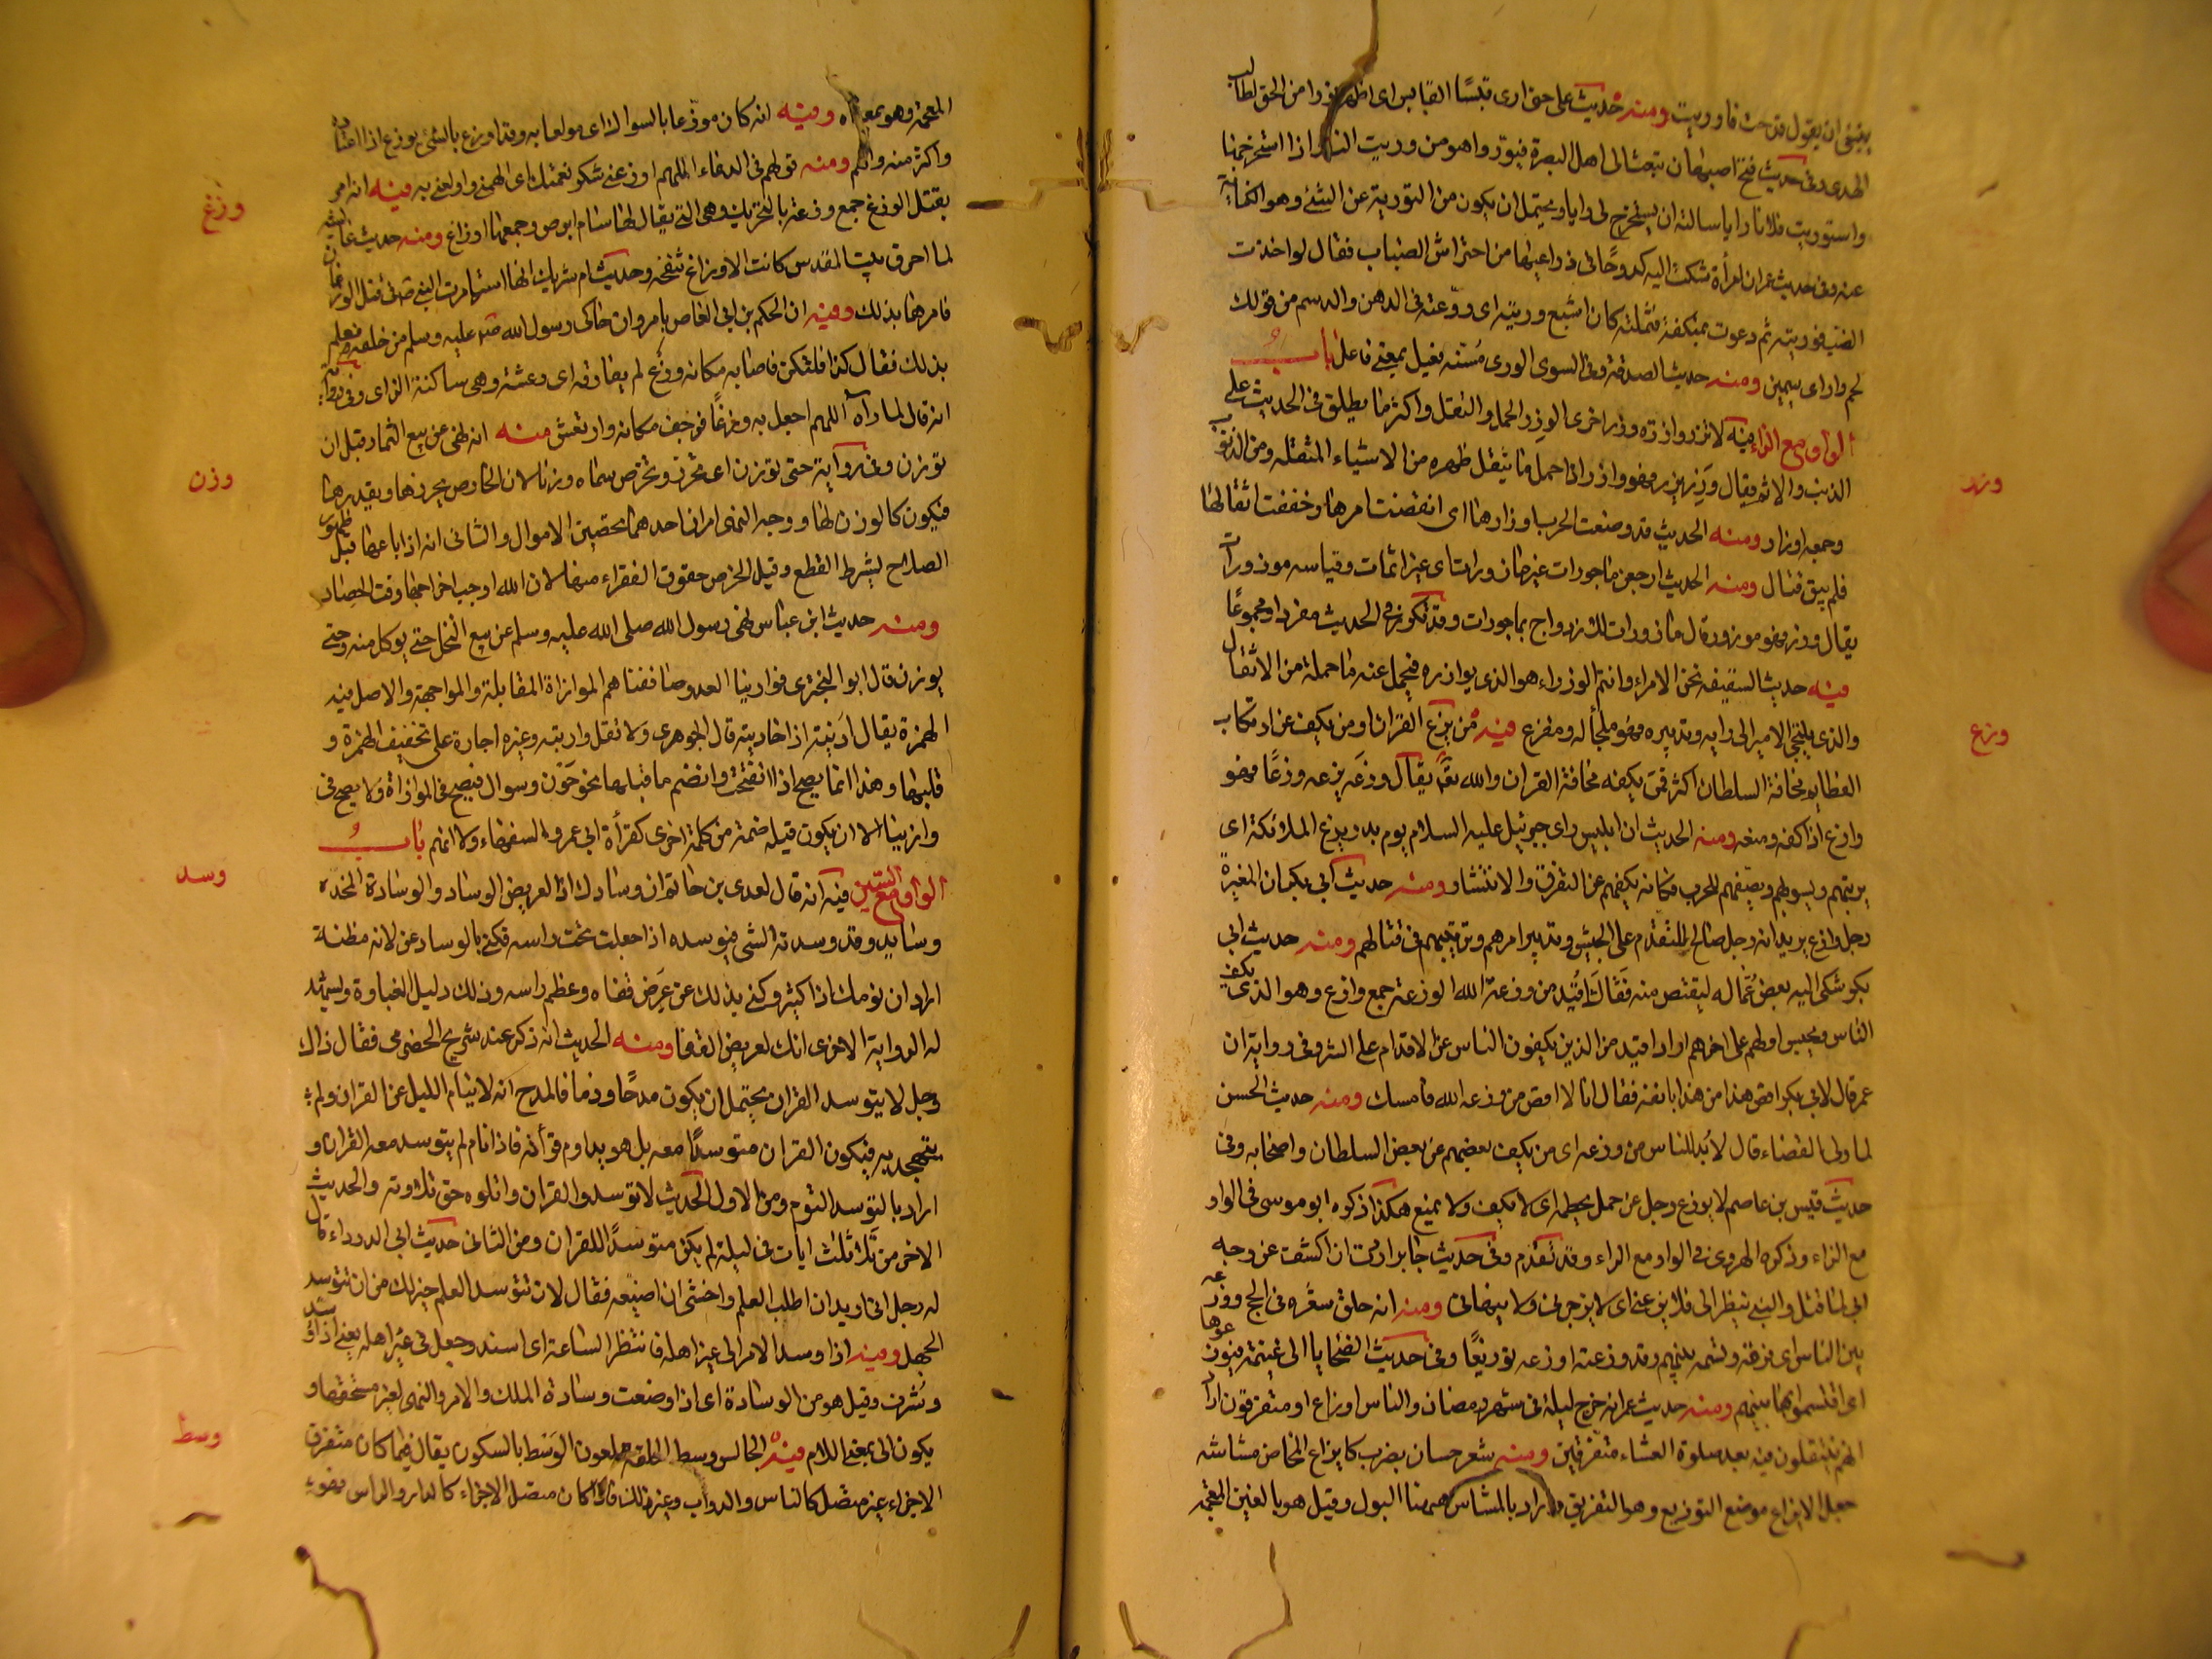 ينبغي ان يقول قد حث فا ووريت ومنه حديث علي حتى اورى قبسًا القابس اى اظهر نورا من الحق لطالب
الهدى وفي حديث فتح اصبهان تبعث الى اهل البصرة فيورّوا هو من وريت النار اذا استخرجتها
واستوريت فلانا رايا سالته ان يستخرج لى رايا ويحتمل ان يكون من التورية عن الشئ وهو الكناية
عنه وفي حديث عمر ان امرأة شكت اليه كدوحًا في ذراعيها من احتراش الضباب فقال لو اخذت
الضب فوريته ثم دعوت بمنكفة فثملته كان اشبع وريته اى روغته في الدهن والدسم من قولك
لحم وار اى سمين ومنه حديث الصدقة وفي السوى الورى مُسنة فعيل بمعنى فاعل باب
الواو مع الزاء فيه لا تزر وازرة وزر اخرى الوزر الحمل والثقل واكثر ما يطلق في الحديث على
الذنب والاثم يقال وَزِر يزر فهو وازر اذا حمل ما يثقل ظهره من الاشياء المثقلة ومن الذنوب
وجمعه اوزار ومنه الحديث قد وضعت الحرب اوزارها اى انقضت امرها وخففت اثقالها
فلم يبق قتال ومنه الحديث ارجعن ماجورات غير مازورات اى غير اثمات وقياسه موزورات
يقال وزر فهو موزور قال مازورات للازدواج بماجورات وقد تكرر في الحديث مفردا ومجموعًا
فيه حديث السقيفة نحن الامراء وانتم الوزراء هو الذى يوازره فيحمل عنه ما حمله من الاثقال
والذى يلتجئ الامير الى رايه وتدبيره فهو ملجأ له ومفزع فيه من يزع القران اى من يكف عن ارتكاب
العظايم مخافة السلطان اكثر ممن يكفه مخافة القران والله تعالى يقال وزَعه يزعه وزعًا فهو
وازع اذا كفه ومنعه ومنه الحديث ان ابليس راى جبرئيل عليه السلام يوم بدر يزع الملائكة اى
يرتبهم ويسويهم ويصفهم للحرب فكانه يكفهم عن التفرق والانتشار ومنه حديث ابي بكر ان المغيرة
رجل وازع يريد انه رجل صالح للتقدم على الجيش وتدبير امرهم وترتيبهم في قتالهم ومنه حديث ابي
بكر شكى اليه بعض عُمّاله ليقتص منه فَقال اَقيد من وزعة الله الوزعة جمع وازع وهو الذى يكف
الناس ويحبس اولهم على اخرهم اراد اقيد من الذين يكفون الناس عن الاقدام على الشر وفي رواية ان
عمر قال لابي بكر اقص هذا من هذا بانفه فقال انا لا اقص من وزعه الله فامسك ومنه حديث الحسن
لما ولى القضاء قال لا بُد للناس من وزعة اى من يكف بعضهم عن بعض السلطان واصحابه وفي
حديث قيس بن عاصم لا يوزع رجل عن جمل يخطمه اى لا يكف ولا يمنع هكذا ذكره ابو موسى في الواو
مع الزاء وذكره الهروي في الواو مع الراء وقد تقدم وفي حديث جابر اردت ان اكشف عن وجه
ابي لما قتل والنبي ينظر الى فلا يزعني اى لا يزجرني ولا ينهاني ومنه انه حلق شعره في الحج ووزعه
بين الناس اى فرقه وقسمه بينهم وقد وزعته اوزعه توزيعًا وفي حديث الضحايا الى غنيمة فتوزعوها
اى اقتسموها بينهم ومنه حديث عمر انه خرج ليلة في شهر رمضان والناس اوزاع اى متفرقون اراد
انهم يتنفلون فيه بعد صلوة العشاء متفرقين ومنه شعر حسان بضرب كايزاع المخاض مشاشه
جعل الايزاع موضع التوزيع وهو التفريق واراد بالمشاش ههنا البول وقيل هو بالغين المعجمة
وزر
وزع
المعجمة وهو بمعناه ومنه انه كان موزعا بالسواك اى مولعا به وقد اوزع بالشئ يوزع اذا اعتاده
واكثر منه والهم ومنه قولهم في الدعاء اللهم اوزعني شكر نعمتك اى الهمني واولعني به فيه انه امر
بقتل الوزغ جمع وزغة بالتحريك وهي التي يقال لها سام ابرص وجمعها اوزاغ ومنه حديث عائشة
لما احرق بيت المقدس كانت الاوزاغ تنفخه وحديث ام شريك انها استامرت النبي في قتل الوزغان
فامرها بذلك ومنه ان الحكم بن ابي العاص يا مروان حاكى رسول الله عليه وسلم من خلفه فعلم
بذلك فقال كذا فلتكن فاصابه مكانه وزغ لم يفارقه اى رعشة وهي ساكنة الزاى وفي رواية
انه قال لما رآه اللهم اجعل به وزغًا فرجف مكانه وارتعش منه انه نهى عن بيع الثمار قبل ان
توزن وفي رواية حتى توزن اى تحزر وتخرص سماه وزنا لان الخارص يحزرها ويقدرها
فيكون كالوزن لها ووجه النهى امران احدهما تحصين الاموال والثاني انه اذا باعها قبل ظهور
الصلاح بشرط القطع وقبل الخرص حقوق الفقراء منها لان الله اوجب اخراجها وقت الحصاد
ومنه حديث ابن عباس نهى رسول الله صلى الله عليه وسلم عن بيع النخل حتى يوكل منه وحتى
يوزن قال ابو البختري فوازينا العدو وصاففناهم الموازاة المقابلة والمواجهة والاصل فيه
الهمزة يقال ازيته اذا حاذيته قال الجوهري ولا تقل وازيته وغيره اجازه على تخفيف الهمزة و
قلبها وهذا انما يصح اذا انفتحت وانضم ما قبلها نحو جَوَن وسوال فيصح في الموازاة ولا يصح في
وازينا الا ان يكون قبله ضمة من كلمة اخرى كقرأة ابي عمرو السفهاء ولا انهم باب
الواو مع السين فيه انه قال لعدي بن حاتم ان وسادك اذًا لعريض الوساد والوسادة المخدة
وسايد وقد وسدته الشئ فتوسده اذا جعلت تحت راسه فكنى بالوساد عن لانه مظنة
اراد ان نومك اذا كثير وكنى بذلك عن عِرَض قفاه وعظم راسه وذلك دليل الغباوة ويشهد
له الرواية الاخرى انك لعريض القفا ومنه الحديث انه ذكر عند شريح الحضرمى فقال ذاك
رجل لا يتوسد القران يحتمل ان يكون مدحًا وذما فالمدح انه لا ينام الليل عن القران ولم
يتهجد به فيكون القران متوسدًا معه بل هو يداوم قرأته فاذا نام لم يتوسد معه القران و
اراد بالتوسد النوم ومن الاول الحديث لا توسدوا القران واتلوه حق تلاوته والحديث
الاخر من قرأ ثلث ايات في ليلة لم يكن متوسدًا للقران ومن الثاني حديث ابي الدرداء قال
له رجل اني اريد ان اطلب العلم واخشى ان اضيعه فقال لان تتوسد العلم خير لك من ان تتوسد
الجهل ومنه اذا وسد الامر الى غير اهله فانتظر الساعة اى اسند وجعل في غير اهله يعني اذا سُوّد
وشُرف وقيل هو من الوسادة اى اذا وضعت وسادة الملك والامر والنهى لغير مستحقها و
يكون الى بمعنى اللام فيه الجالس وسط الحلقة ملعون الوَسْط بالسكون يقال فيما كان متفرق
الاجزاء غير متصل كالناس والدواب وغير ذلك فاذا كان متصل الاجزاء كالدار والراس فهو
وزغ
وزن
وسد
وسط